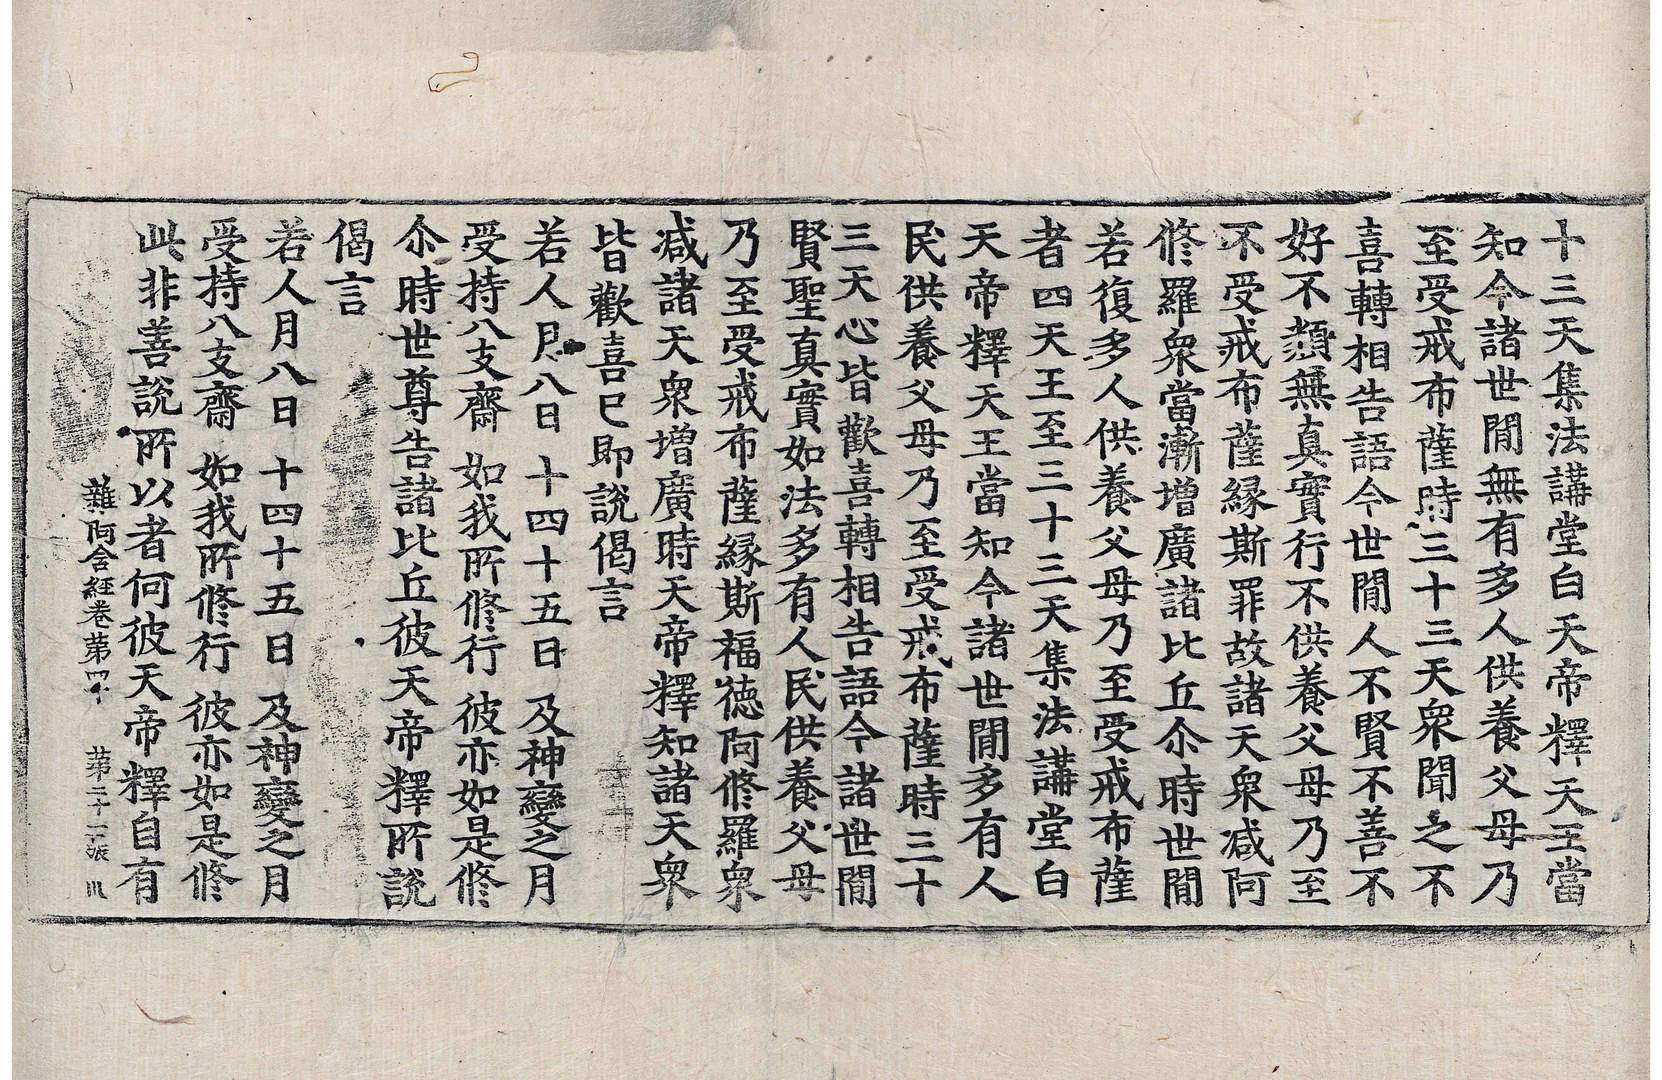 十三天集法講堂白天帝釋天王當
知今諸世間無有多人供養父母乃
至受戒布薩時三十三天衆聞之不
喜轉相告語今世間人不賢不善不
好不類無真實行不供養父母乃至
不受戒布薩緣斯罪故諸天衆減阿
修羅衆當漸增廣諸比丘尒時世間
若復多人供養父母乃至受戒布薩
者四天王至三十三天集法講堂白
天帝釋天王當知今諸世間多有人
民供養父母乃至受戒布薩時三十
三天心皆歡喜轉相告語今諸世間
賢聖真實如法多有人民供養父母
乃至受戒布薩緣斯福德阿修羅衆
減諸天衆增廣時天帝釋知諸天衆
皆歡喜已即說偈言
若人月八日 十四十五日 及神變之月
受持八支齋 如我所修行 彼亦如是修
尒時世尊告諸比丘彼天帝釋所說
偈言
若人月八日 十四十五日 及神變之月
受持八支齋 如我所修行 彼亦如是修
此非善說所以者何彼天帝釋自有
雜阿含經卷第四十 第二十一張 川